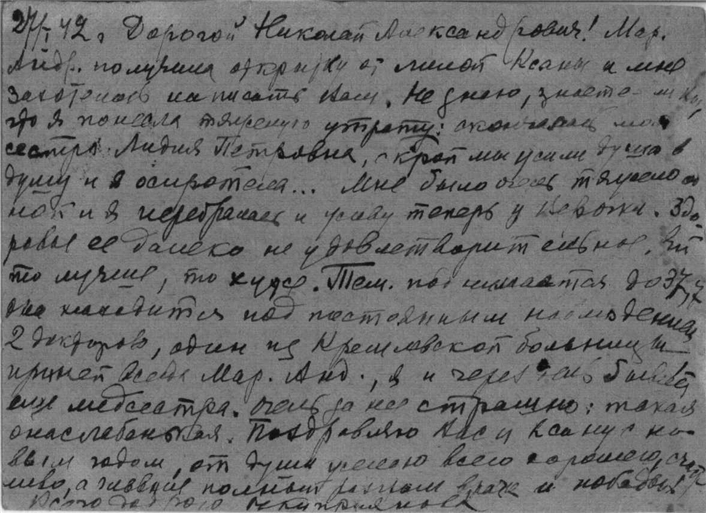 27/I 42 г Дорогой Николай Александрович! Мар.
Андр. получила открытку от милой Ксаны и мне
захотелось написать Вам. Не знаю, знаете ли Вы,
что я понесла тяжелую утрату: скончалась моя
сестра Лидия Петровна, с кот мы жили душа в
душу и я осиротела... Мне было очень тяжело од
ной и я перебралась и живу теперь у Невожи. Здо
ровье ее далеко не удовлетворительное. Ей
то лучше, то хуже. Тем. поднимается до 37,7
она находится под постоянным наблюдением
2 докторов, один из Кремлевской больницы
при ней всегда Мар. Анд., я и через день бывает
еще медсестра. Очень за нее страшно: такая
она слабенькая. Поздравляю Вас и Ксану с но-
вым годом, от души желаю всего хорошего, счаст
ливо, а главное полным врага и победы
Всего доброго